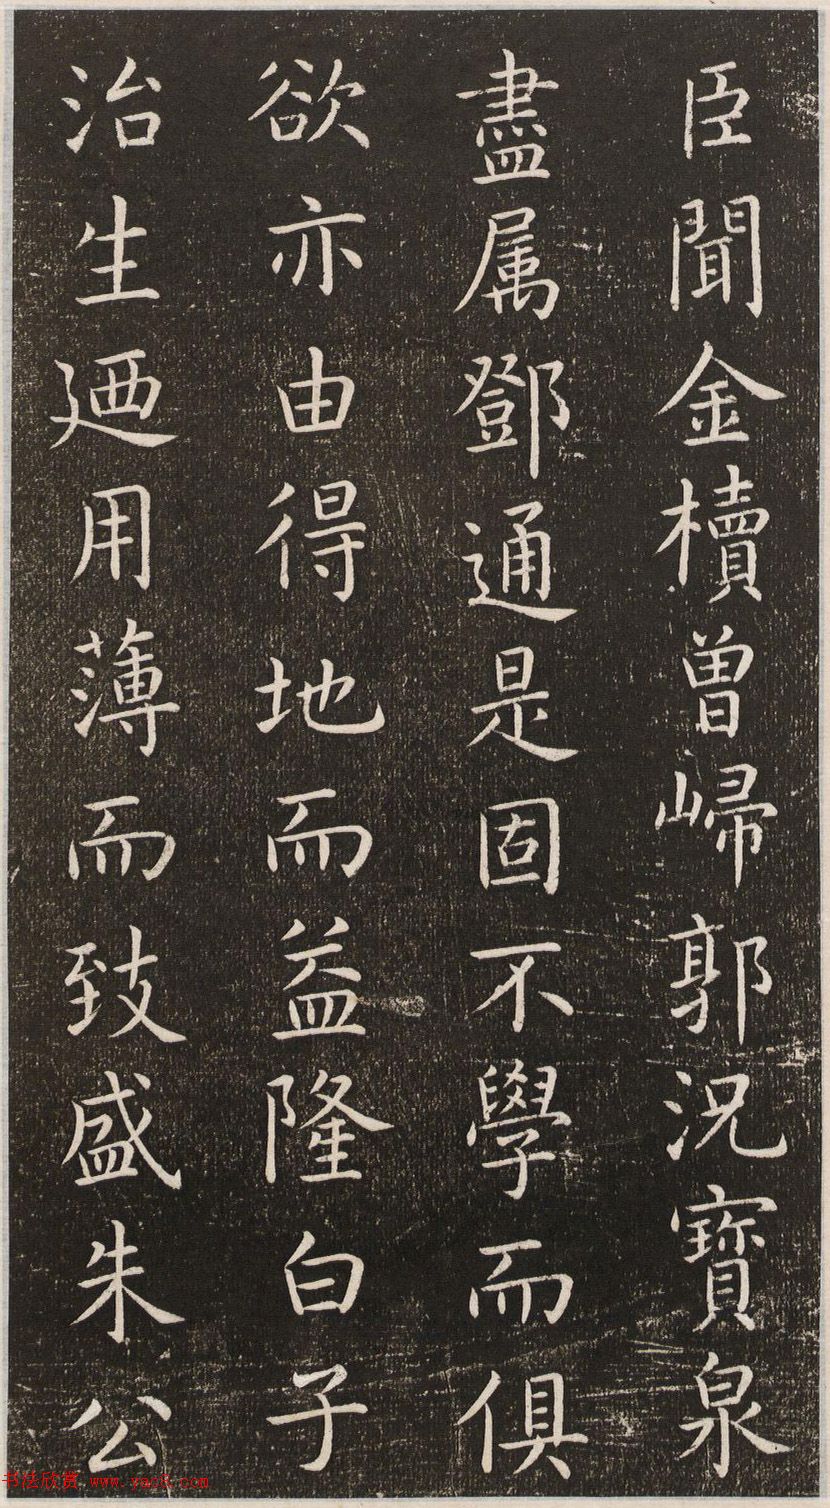 臣聞金櫝曾歸郭況寶泉
盡属鄧通是固不學而俱
欲亦由得地而益隆白子
治生廼用薄而致盛朱公
书法欣赏 www.yac8.com